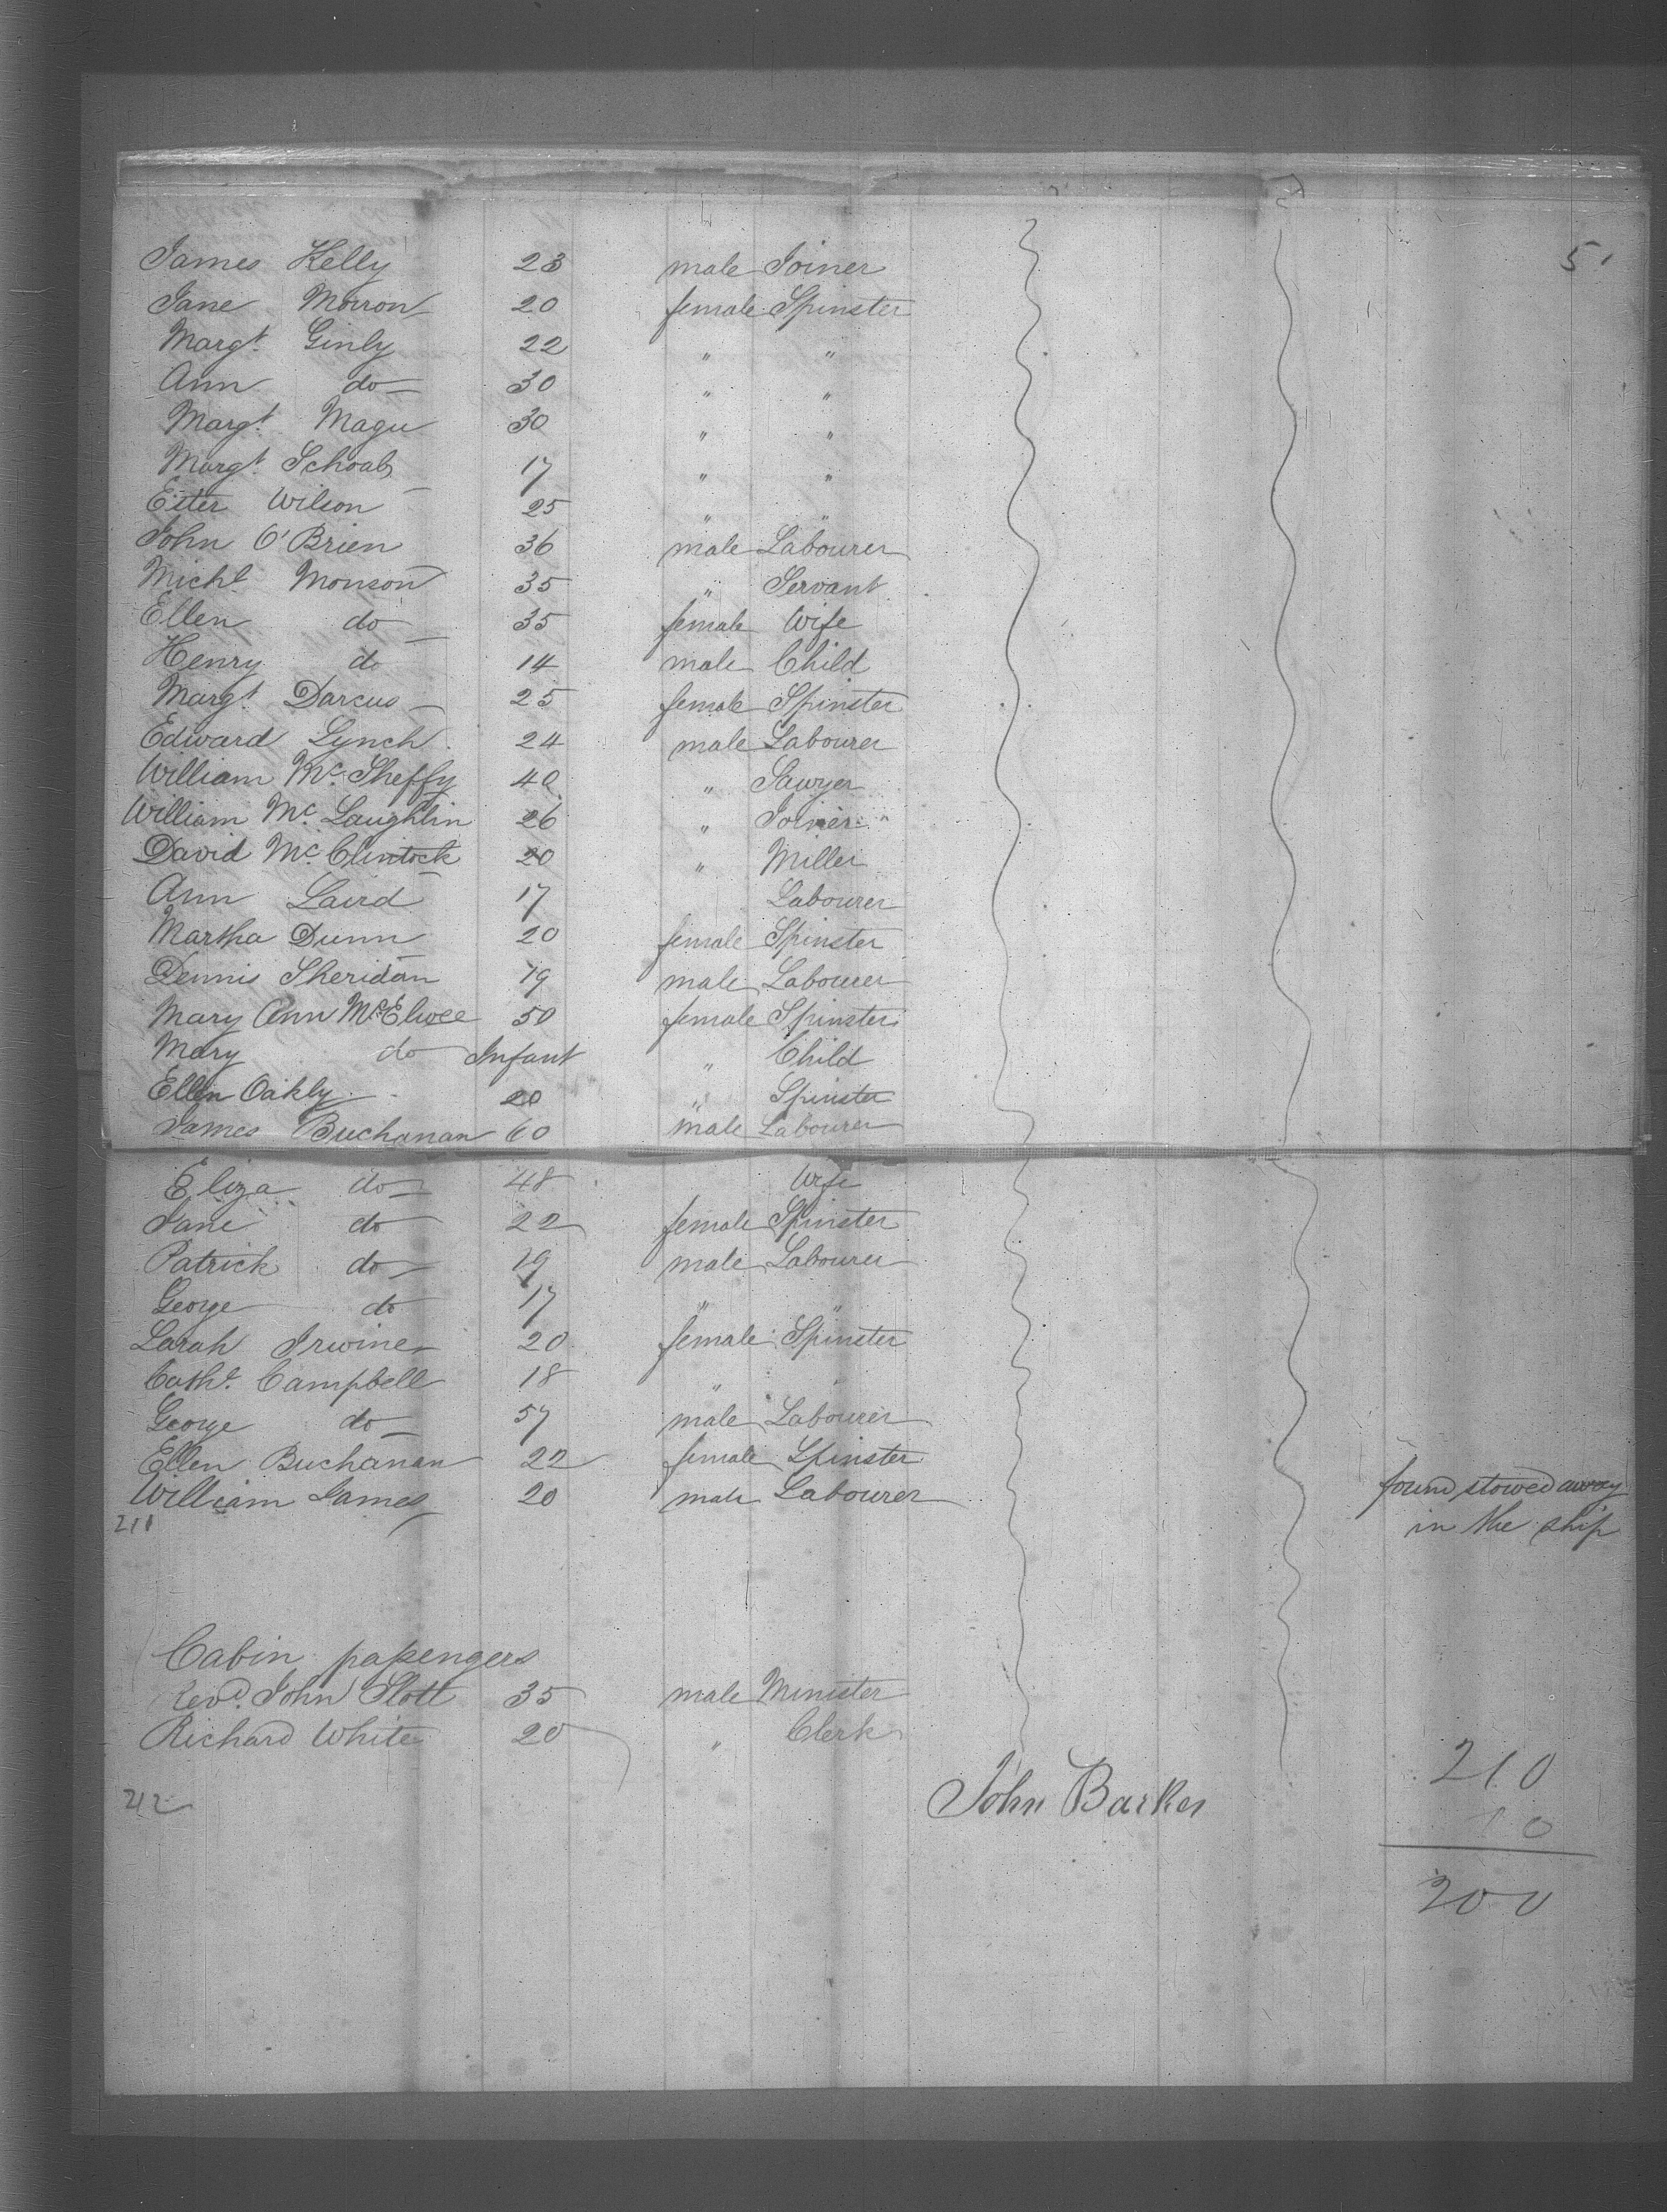 5
James Kelly 23 male Joiner
Jane Morron 20 female Spinster
Margt. Ginly 22 " "
Ann do 30 " "
Margt. Magu 30 " "
Margt. Schoals 17 " "
Ester Wilson 25 " "
John O'Brien 36 male Labourer
Michl. Monson 35 " Servant
Ellen do 35 female Wife
Henry do 14 male Child
Margt. Darcus 25 female Spinster
Edward Lynch 24 male Labourer
William Mc. Sheffy 40 " Sawyer
William Mc. Laughlin 26 " Joiner
David Mc. Clintock 20 " Miller
Ann Laird 17 Labourer
Martha Dunn 20 female Spinster
Dennis Sheridan 19 male Labourer
Mary Ann McElwee 50 female Spinster
Mary do Infant " Child
Ellen Oakly 20 " Spinster
James Buchanan 60 male Labourer
Eliza do 48 Wife
Jane do 22 female Spinster
Patrick do 19 male Labourer
George do 17 " "
Sarah Irwine 20 female Spinster
Cathe. Campbell 18 " "
George do 57 male Labourer
Ellen Buchanan 22 female Spinster
William James 20 male Labourer found stowed away
211 in the ship
Cabin passengers
Revd. John Slott 35 male Minister
Richard White 20 " Clerk
210
212 John Barker
10
200